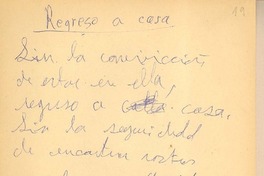 19
Regreso a casa
Sin la convicción
de estar en ella,
regreso a casa.
Sin la seguridad
de encontrar rostros